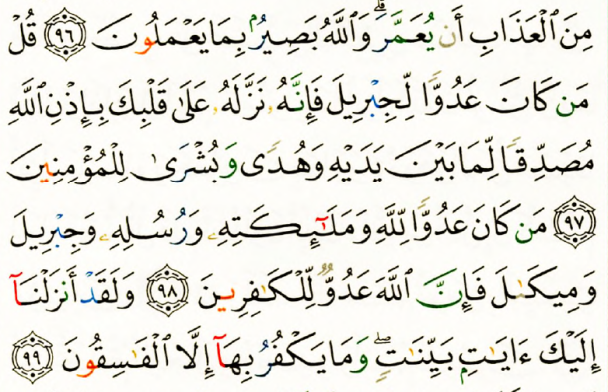 مِنَ ٱلْعَذَابِ أَن يُعَمَّرَ ۗ وَٱللَّهُ بَصِيرٌۢ بِمَا يَعْمَلُونَ ۝٩٦ قُلْ
مَن كَانَ عَدُوًّا لِّجِبْرِيلَ فَإِنَّهُۥ نَزَّلَهُۥ عَلَىٰ قَلْبِكَ بِإِذْنِ ٱللَّهِ
مُصَدِّقًا لِّمَا بَيْنَ يَدَيْهِ وَهُدًى وَبُشْرَىٰ لِلْمُؤْمِنِينَ
۝٩٧ مَن كَانَ عَدُوًّا لِّلَّهِ وَمَلَـٰٓئِكَتِهِۦ وَرُسُلِهِۦ وَجِبْرِيلَ
وَمِيكَىٰلَ فَإِنَّ ٱللَّهَ عَدُوٌّ لِّلْكَـٰفِرِينَ ۝٩٨ وَلَقَدْ أَنزَلْنَآ
إِلَيْكَ ءَايَـٰتٍۭ بَيِّنَـٰتٍ ۖ وَمَا يَكْفُرُ بِهَآ إِلَّا ٱلْفَـٰسِقُونَ ۝٩٩